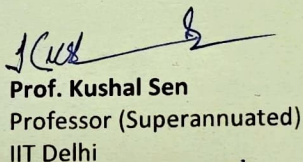 Prof. Kushal Sen
Professor (Superannuated)
IIT Delhi